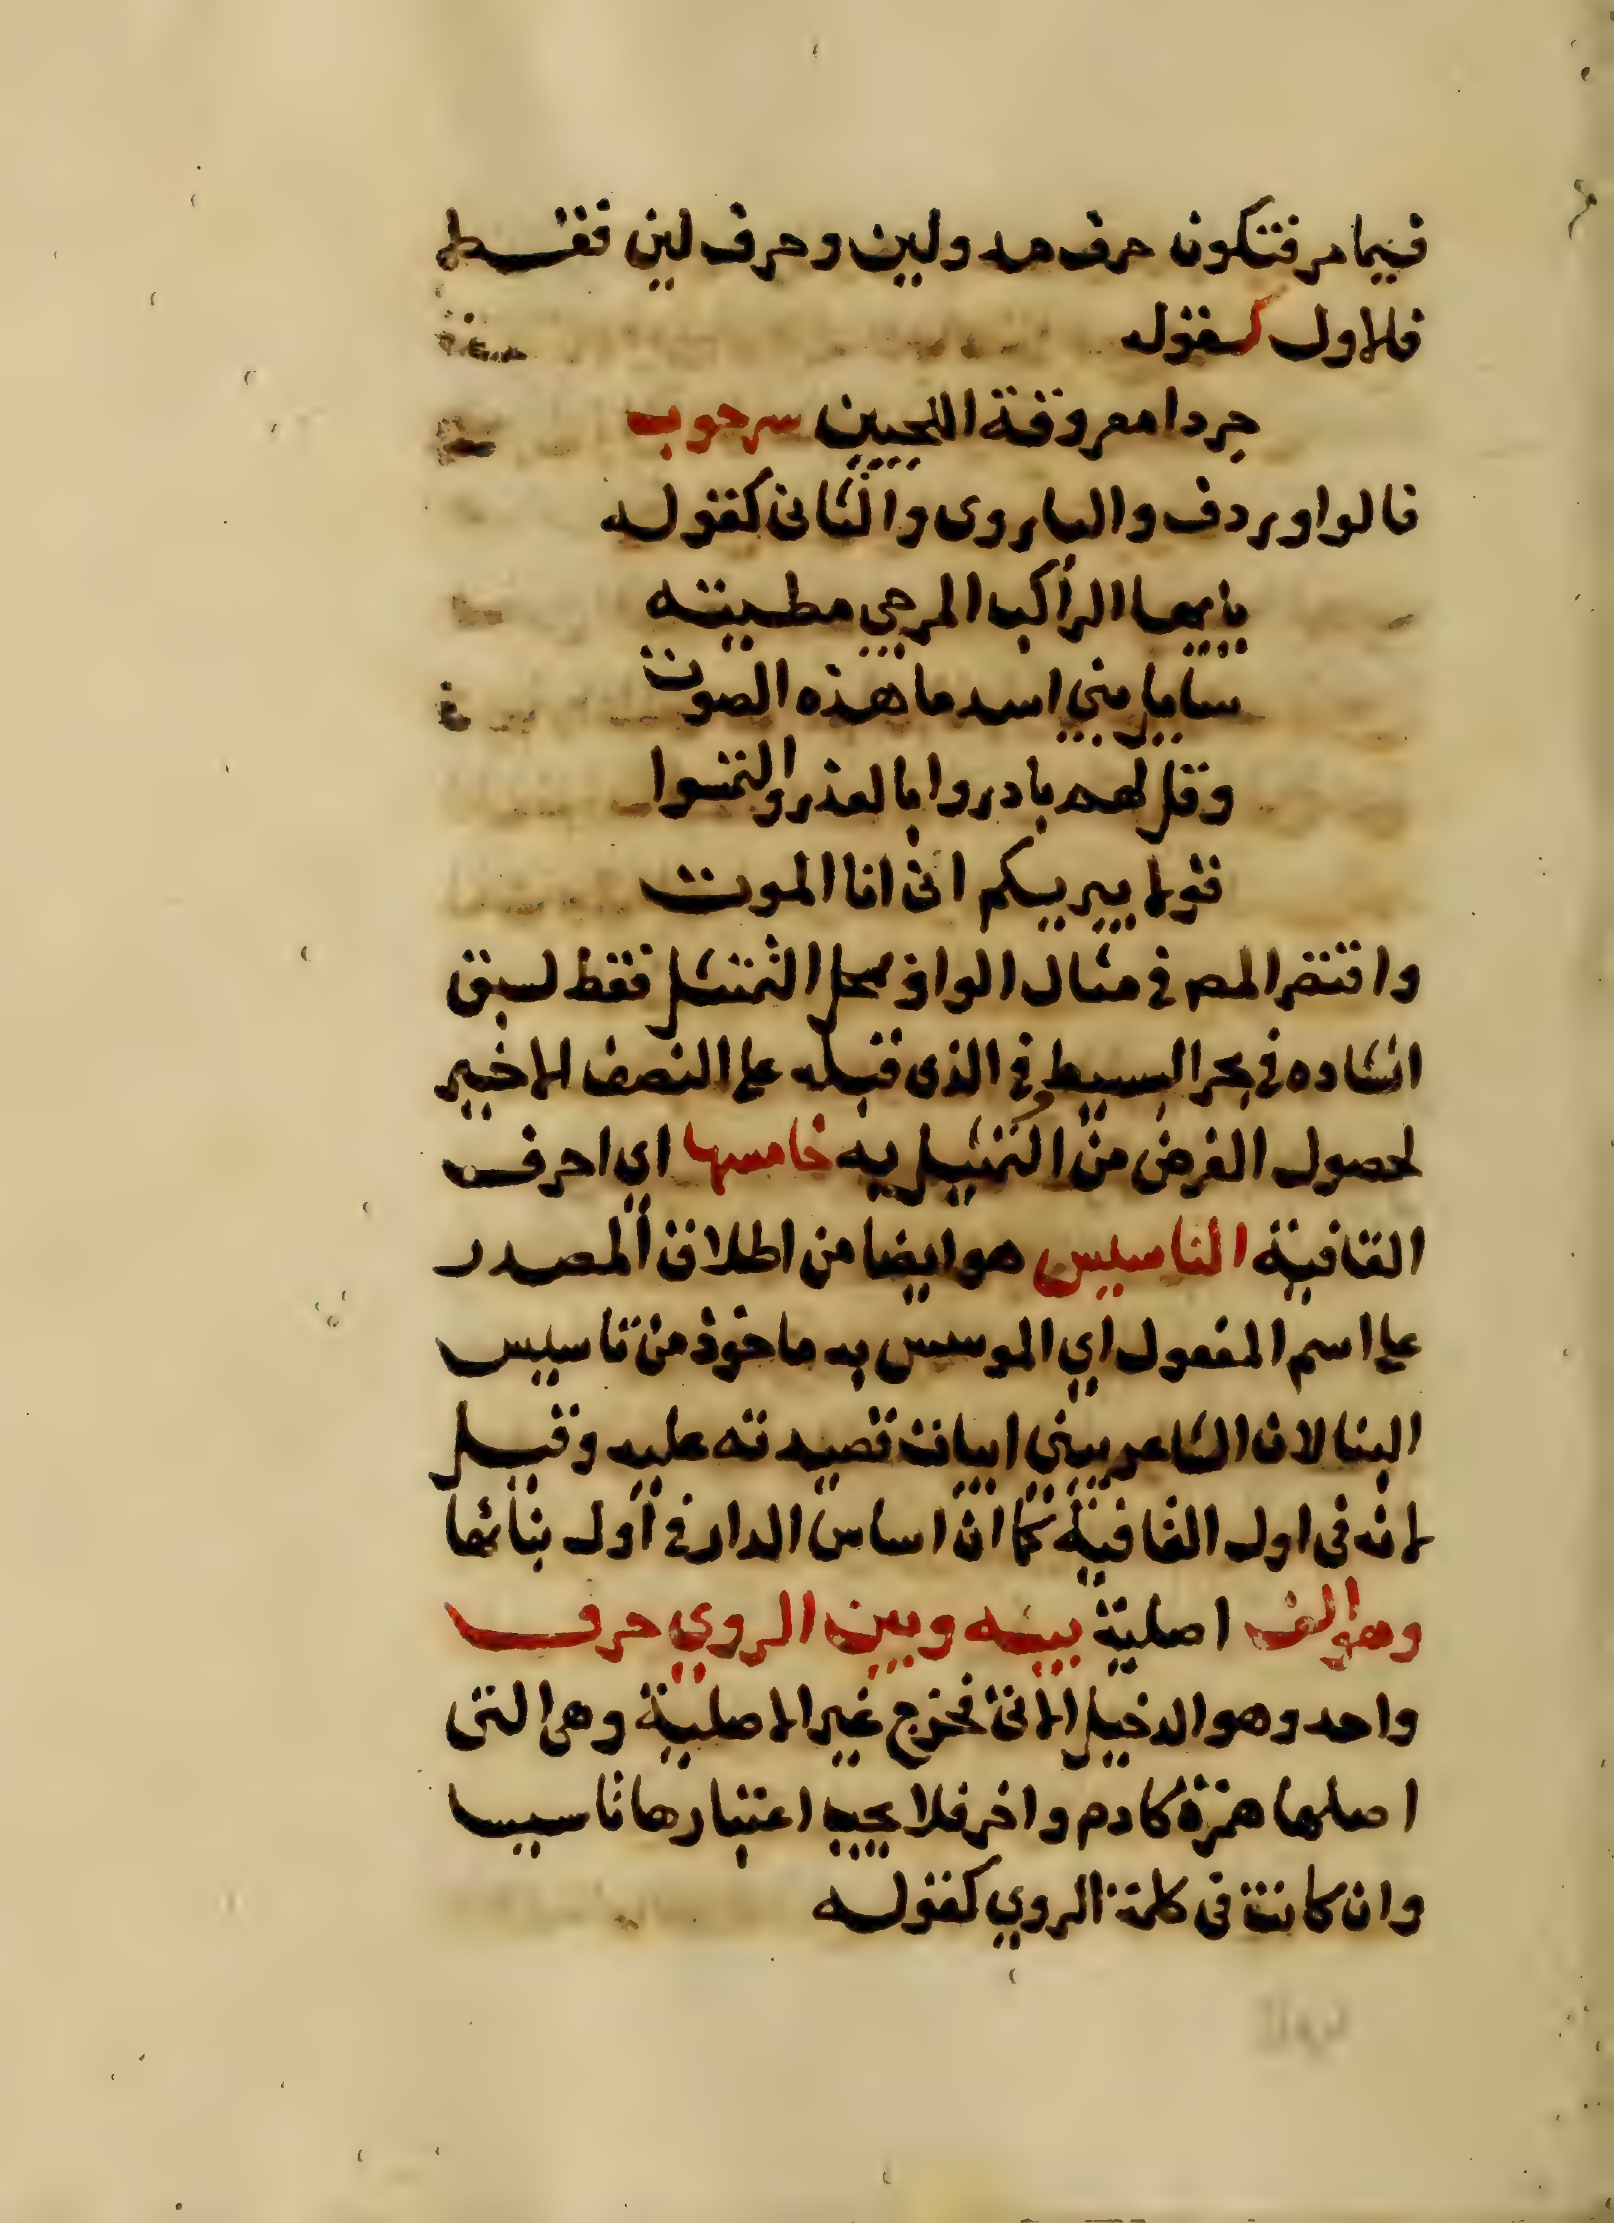 فيما مر فتكون حرف مد ولين وحرف لين فقط
فالاول كقوله
جردا معروقة اللحيين سرحوب
فالواو ردف والباء روى والثانى كقوله
يايها الراكب المزجي مطيته
سايل بني اسد ما هذه الصوت
وقل لهم بادروا بالعذر والتمسوا
قولا يبريكم انى انا الموت
واقتصر المص في مثال الواو بمحل التمثيل فقط لسبق
انشاده في بحر البسيط في الذى قبله على النصف الاخير
لحصول الغرض من التمثيل به خامسها اي احرف
القافية التاسيس هو ايضا من اطلاق المصدر
على اسم المفعول اي الموسس به ماخوذ من تاسيس
البنا لان الشاعر يبني ابيات قصيدته عليه وقيل
لانه فى اول القافية كما ان اساس الدار في اول بنائها
وهو الف اصلية بينه وبين الروي حرف
واحد وهو الدخيل الاتى فخرج غير الاصلية وهى التى
اصلها همزة كادم واخر فلا يجب اعتبارها تاسيسا
وان كانت فى كلمة الروي كقوله